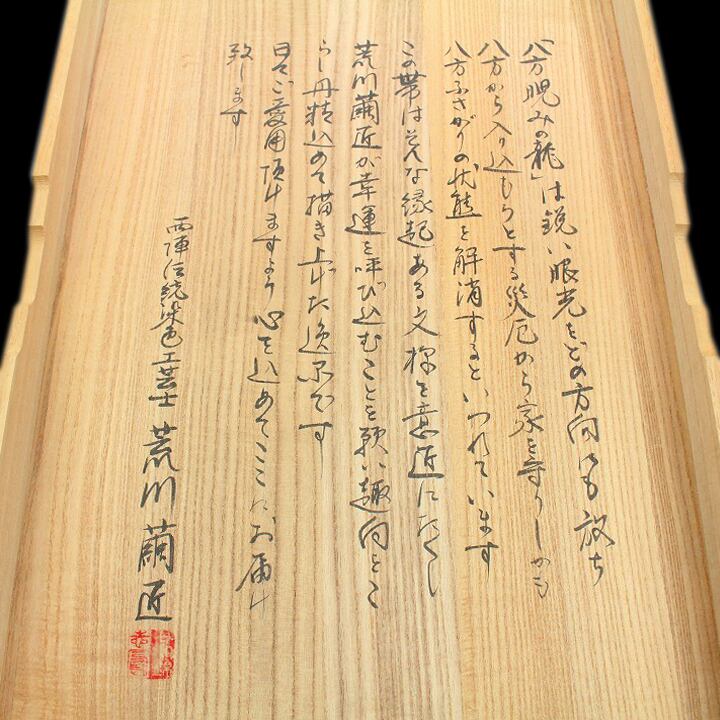 「八方睨みの龍」は鋭い眼光をどの方向にも放ち
八方から入り込もうとする災厄から家を守りしかも
八方ふさがりの状態を解消するといわれています
この帯はそんな縁起ある文様を意匠にたくし
荒川繭匠が幸運を呼び込むことを願い趣向をこ
らし丹精込めて描き上げた逸品です
日々ご愛用頂けますよう心を込めてここにお届け
致します
西陣伝統染色工芸士 荒川繭匠